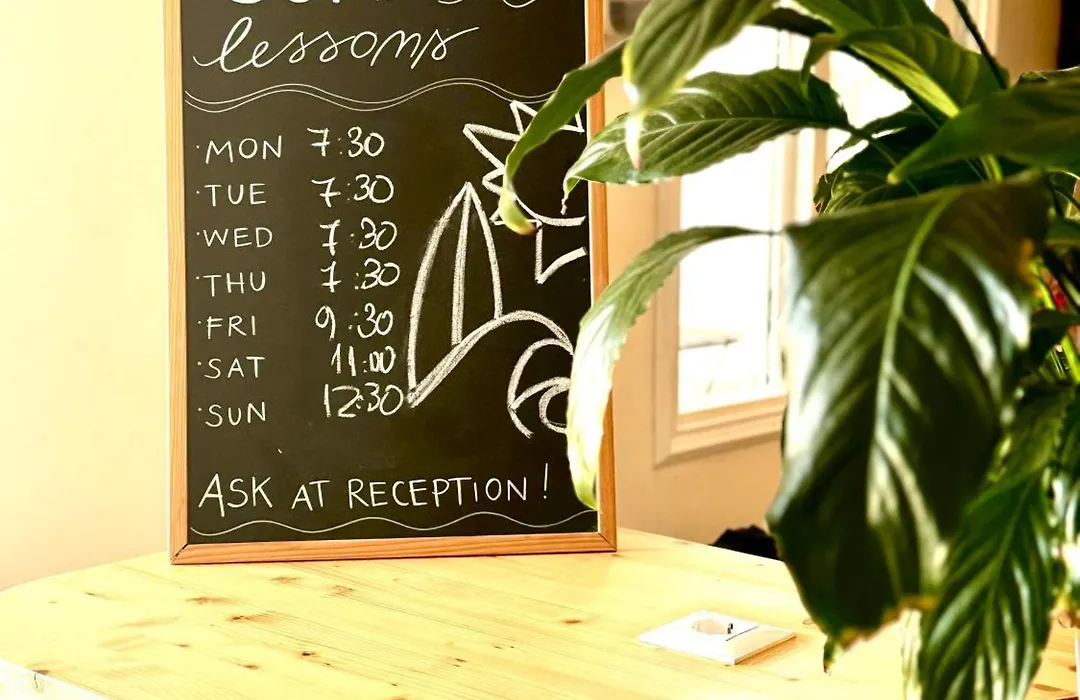 lessons
· MON 7:30
· TUE 7:30
· WED 7:30
· THU 7:30
· FRI 9:30
· SAT 11:00
· SUN 12:30
ASK AT RECEPTION!